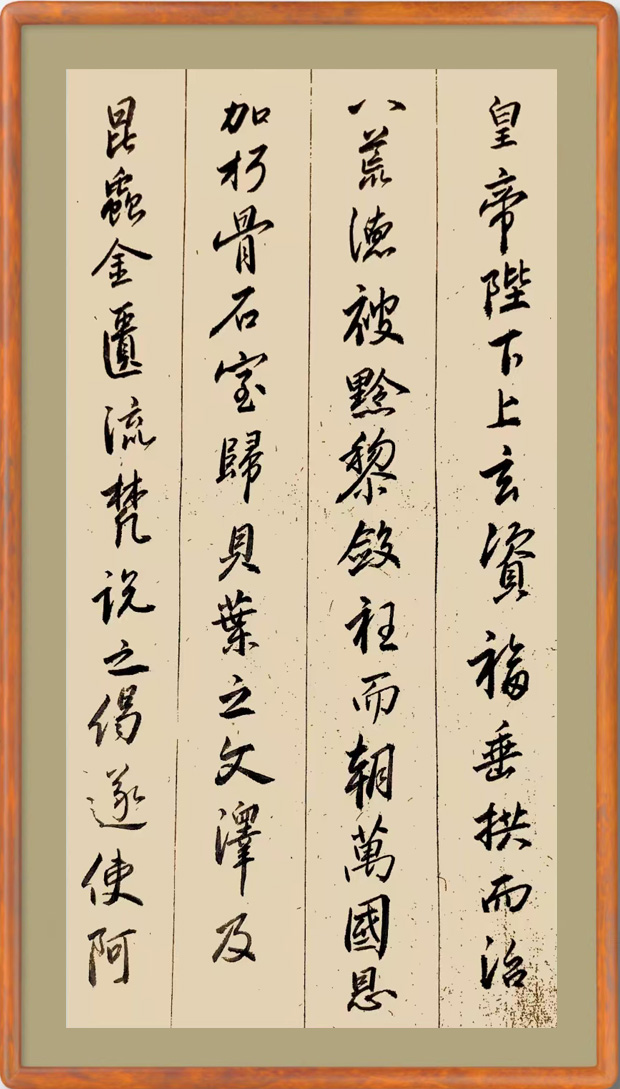 皇帝陛下上玄資福垂拱而治
八荒德被黔黎斂衽而朝萬國恩
加朽骨石室歸貝葉之文澤及
昆蟲金匱流梵説之偈遂使阿